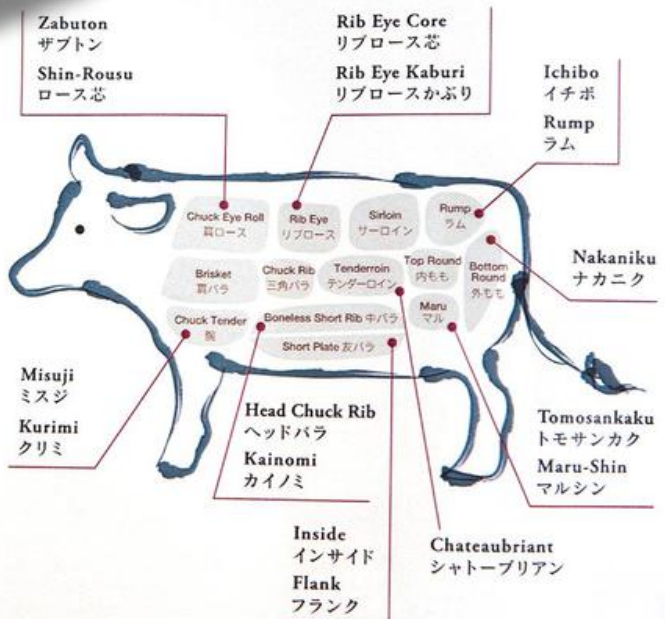 Zabuton
ザブトン
Shin-Rousu
ロース芯
Rib Eye Core
リブロース芯
Rib Eye Kaburi
リブロースかぶり
Ichibo
イチボ
Rump
ラム
Chuck Eye Roll
肩ロース
Rib Eye
リブロース
Sirloin
サーロイン
Rump
ラム
Brisket
肩バラ
Chuck Rib
三角バラ
Tenderroin
テンダーロイン
Top Round
内もも
Bottom
Round
外もも
Nakaniku
ナカニク
Chuck Tender
腕
Boneless Short Rib 中バラ
Maru
マル
Short Plate 友バラ
Misuji
ミスジ
Kurimi
クリミ
Head Chuck Rib
ヘッドバラ
Kainomi
カイノミ
Tomosankaku
トモサンカク
Maru-Shin
マルシン
Inside
インサイド
Flank
フランク
Chateaubriant
シャトーブリアン